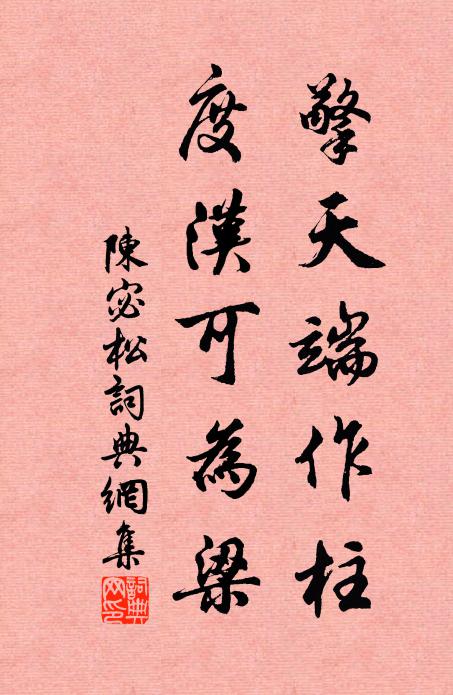 擎天端作柱
度漢可為梁
陳宓松詞典網集
詞典网印